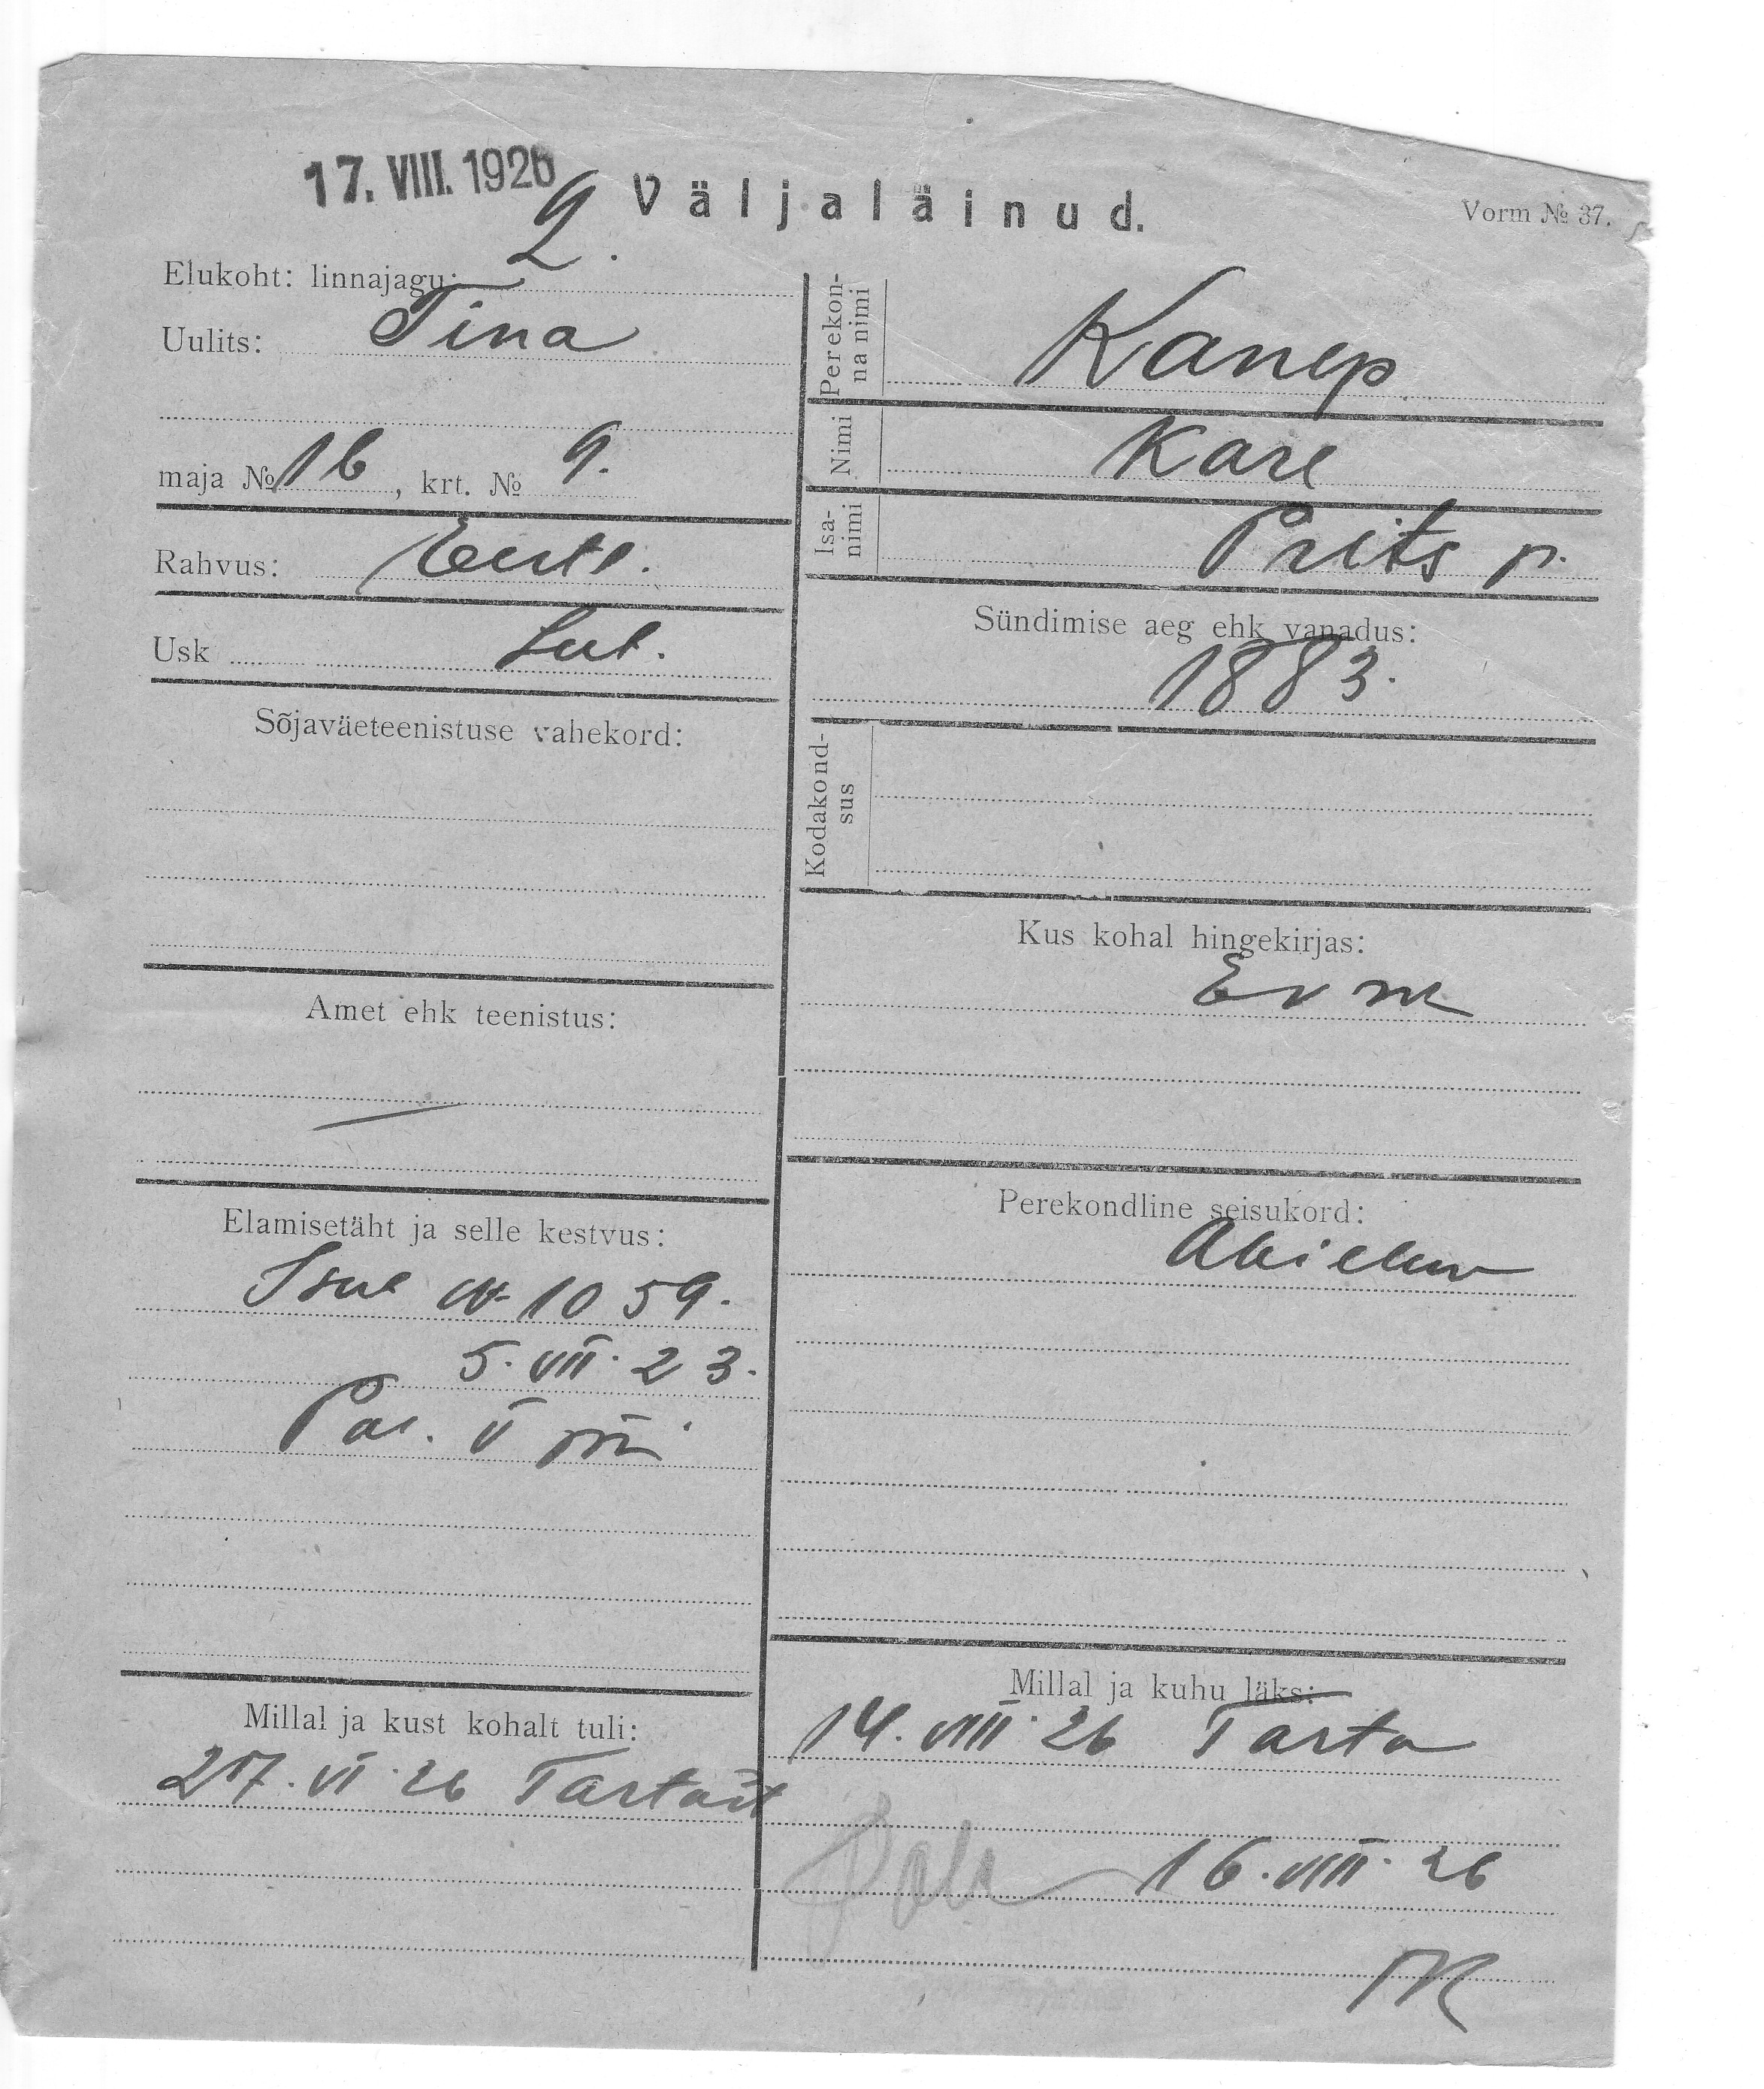 17. VIII. 1926
Väljaläinud.
Vorm № 37.
Elukoht: linnajagu: 2.
Uulits: Tina
maja № 16, krt. № 9.
Rahvus: Eestl.
Usk Lut.
Sõjaväeteenistuse vahekord:
Amet ehk teenistus:
—
Elamisetäht ja selle kestvus:
Isut № 1059.
5. VII. 23.
Millal ja kust kohalt tuli:
27. VI. 26 Tartust
Perekonna nimi Kanep
Nimi Karl
Isanimi Prits p.
Sündimise aeg ehk vanadus:
1883.
Kodakondsus
Kus kohal hingekirjas:
Perekondline seisukord:
Abielus
Millal ja kuhu läks:
14. VIII. 26 Tartu
16. VIII. 26